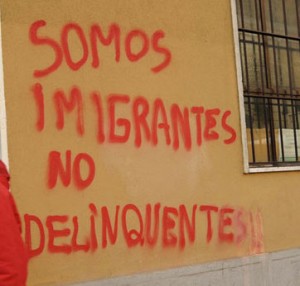 SOMOS
IMIGRANTES
NO
DELINQUENTES!!